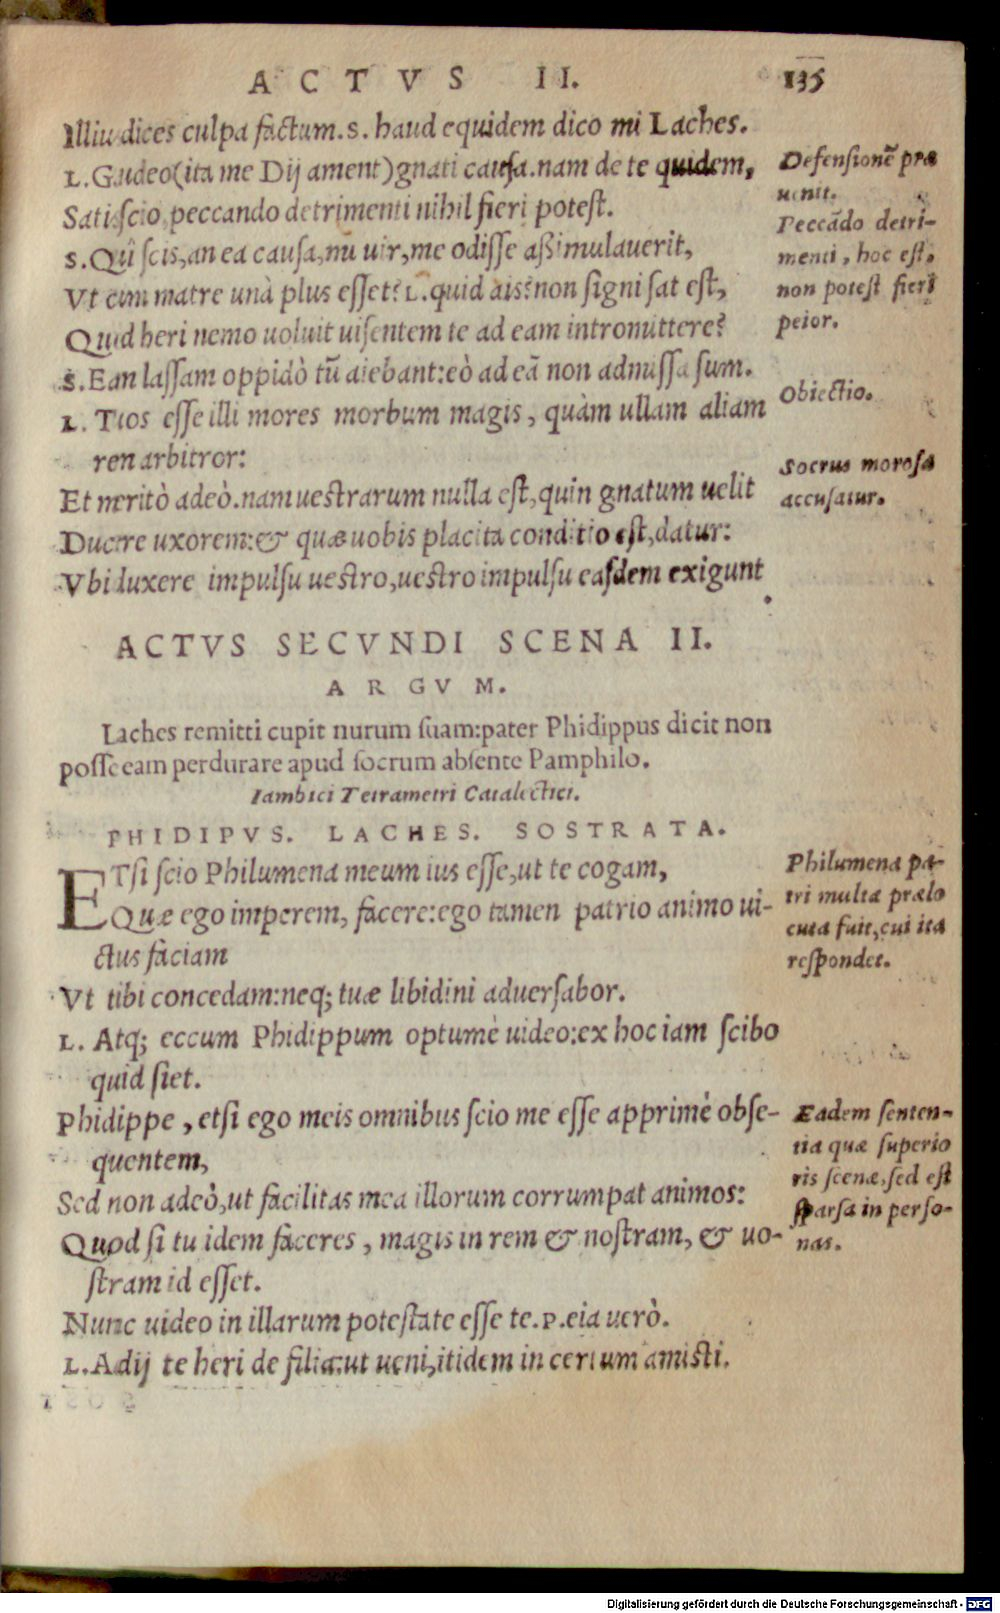 ACTVS II. 135
Illius dices culpa factum. S. haud equidem dico mi Laches.
L. Gaudeo (ita me Dij ament) gnati causa. nam de te quidem,
Satis scio, peccando detrimenti nihil fieri potest.
S. Quî scis, an ea causa, mi vir, me odisse aßimulauerit,
Vt cum matre unà plus esset? L. quid ais? non signi sat est,
Quod heri nemo uoluit uisentem te ad eam intromittere?
S. Enim lassam oppidò tũ aiebant: eò ad eã non admissa sum.
L. Tuos esse illi mores morbum magis, quàm ullam aliam
rem arbitror:
Et meritò adeò. nam uestrarum nulla est, quin gnatum uelit
Ducere uxorem: & quæ uobis placita conditio est, datur:
Vbi duxere impulsu uestro, uestro impulsu easdem exigunt
Defensionẽ præ
uenit.
Peccãdo detri-
menti, hoc est,
non potest fieri
peior.
Obiectio.
Socrus morosa
accusatur.
ACTVS SECVNDI SCENA II.
ARGVM.
Laches remitti cupit nurum suam: pater Phidippus dicit non
posse eam perdurare apud socrum absente Pamphilo.
Iambici Tetrametri Catalectici.
PHIDIPVS. LACHES. SOSTRATA.
ETsi scio Philumena meum ius esse, ut te cogam,
Quæ ego imperem, facere: ego tamen patrio animo ui-
ctus faciam
Vt tibi concedam: neq; tuæ libidini aduersabor.
L. Atq; eccum Phidippum optumè uideo: ex hoc iam scibo
quid siet.
Phidippe, etsi ego meis omnibus scio me esse apprimè obse-
quentem,
Sed non adeò, ut facilitas mea illorum corrumpat animos:
Quod si tu idem faceres, magis in rem & nostram, & uo-
stram id esset.
Nunc uideo in illarum potestate esse te. P. eia uerò.
L. Adij te heri de filia: ut ueni, itidem incertum amisti.
Philumena pa-
tri multa prælo
cuta fuit, cui ita
respondet.
Eadem senten-
tia quæ superio
ris scenæ, sed est
sparsa in perso-
nas.
Digitalisierung gefördert durch die Deutsche Forschungsgemeinschaft - DFG